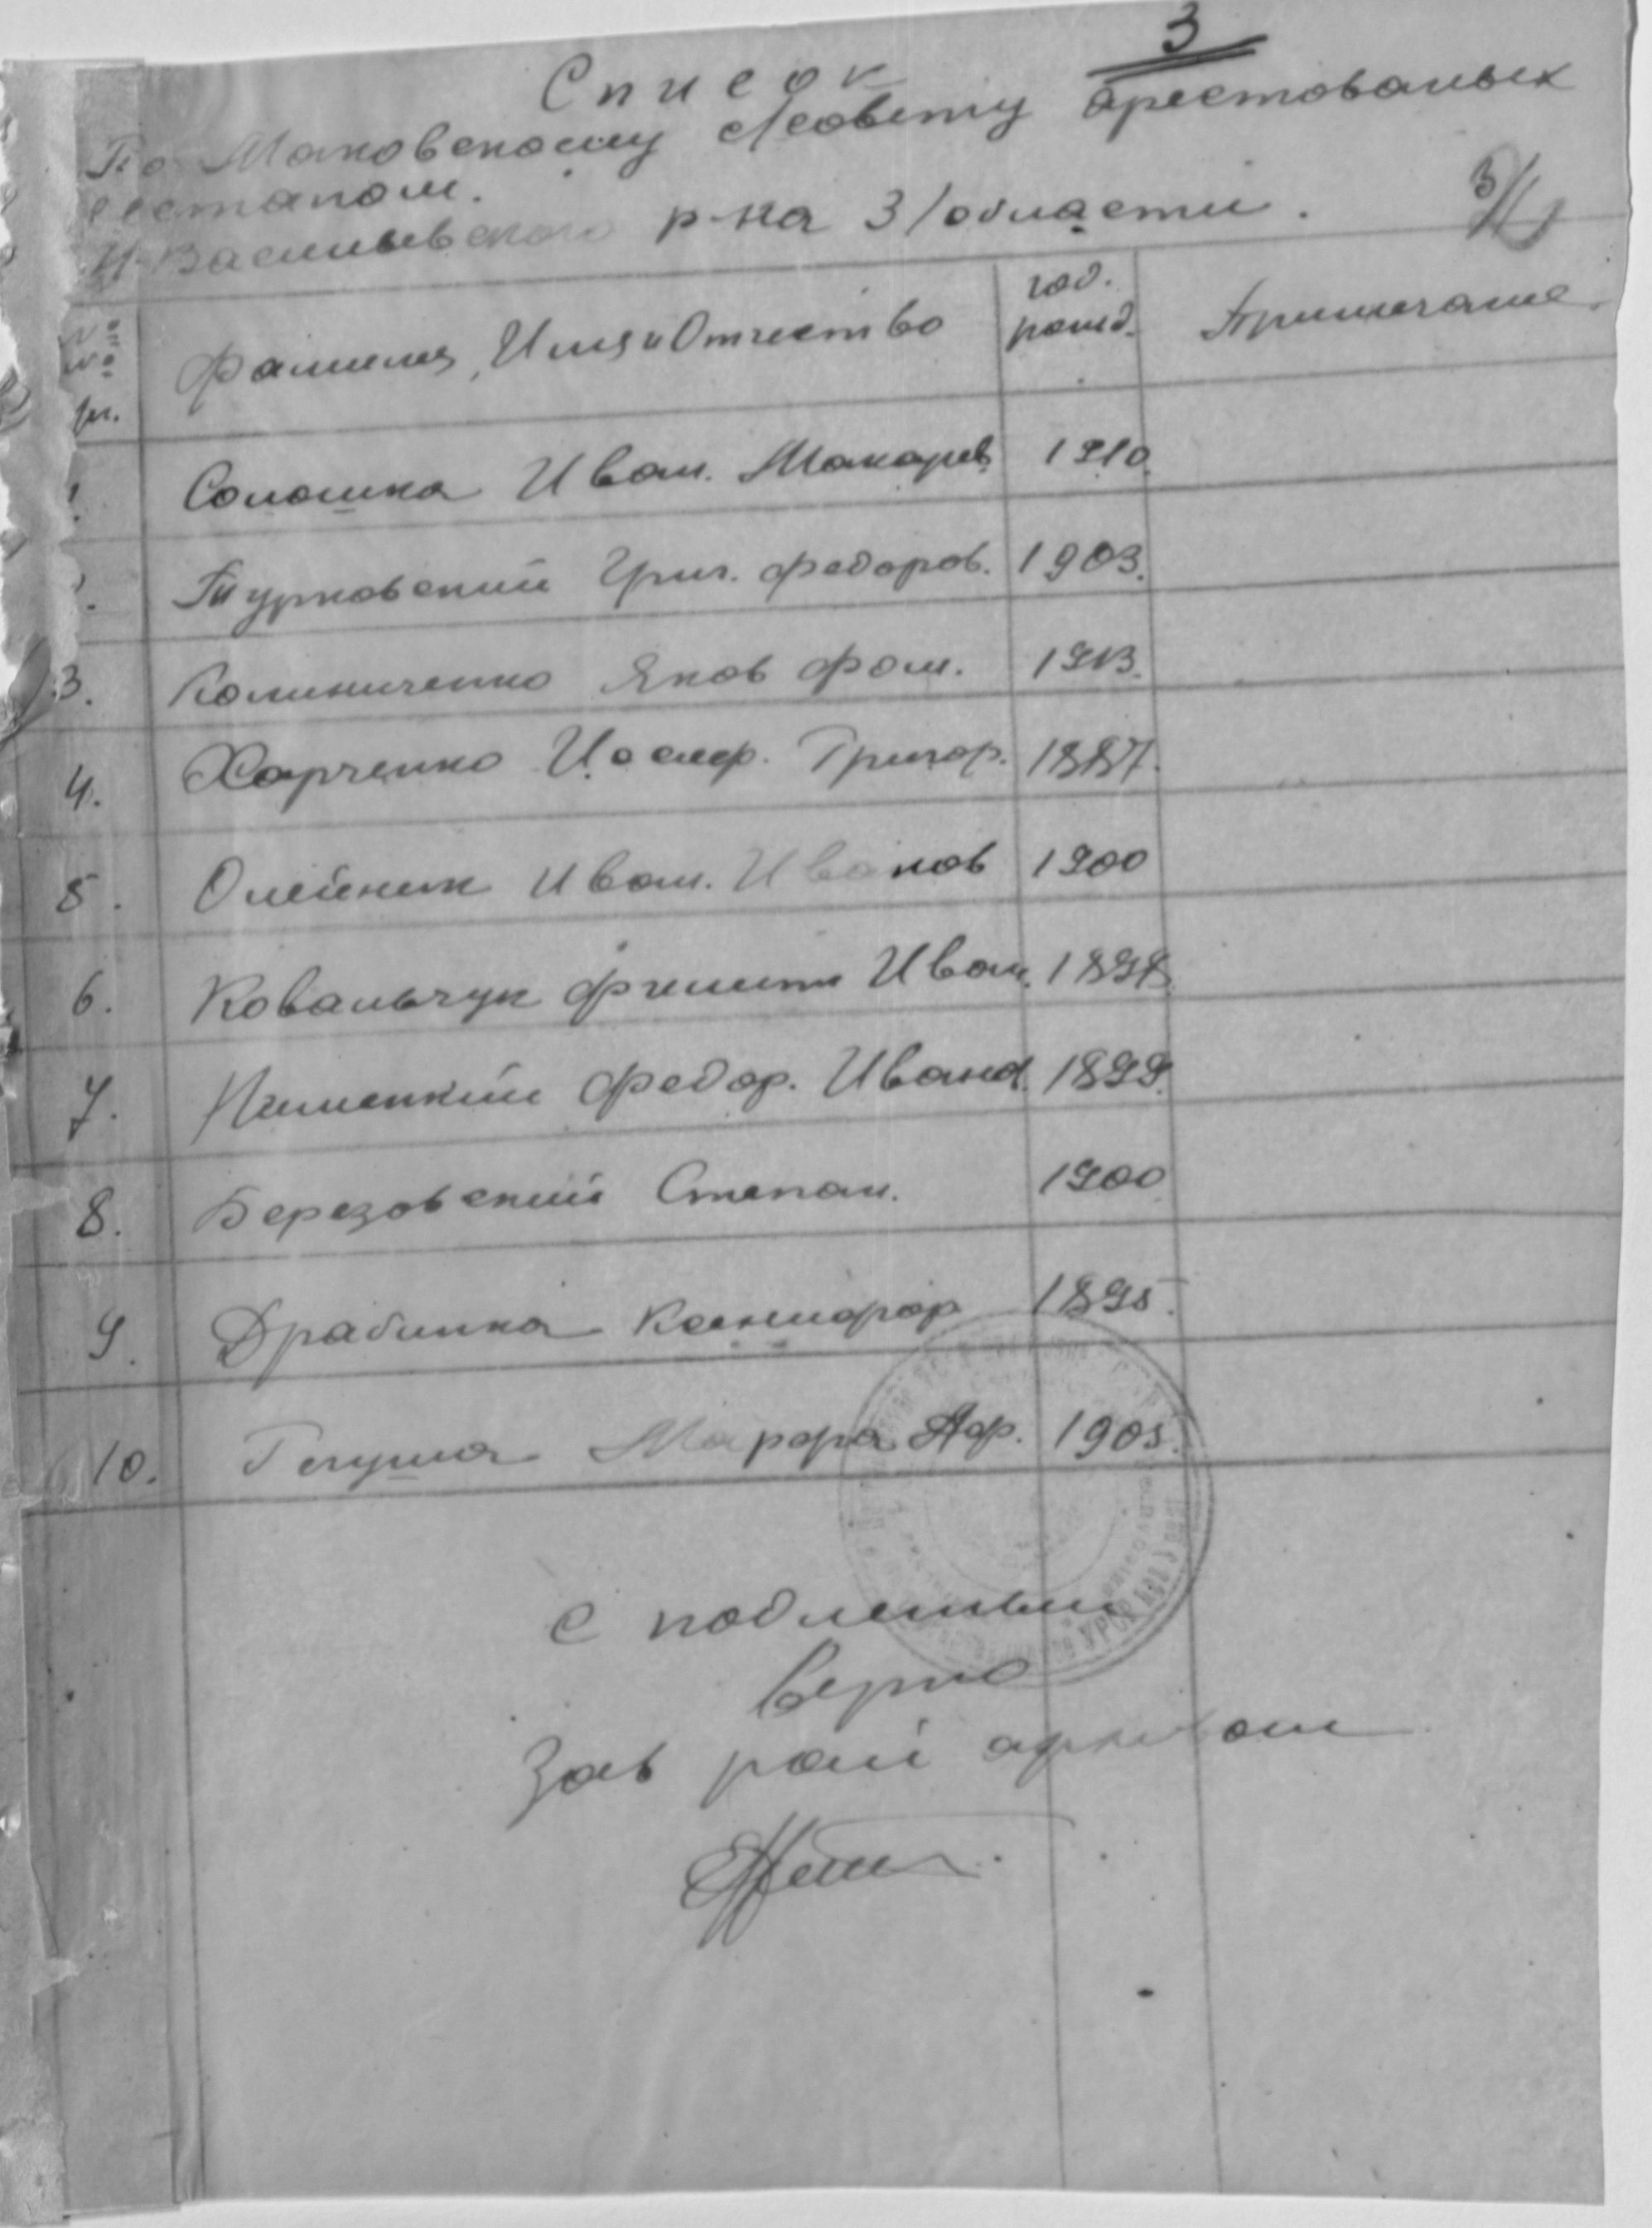 3
Список
По Маковскому с/совету арестованых
гестапом.
Н-Васильевского р-на З/области.
3
№ №
пп.
Фамилия, Имя и Отчество
год. рожд.
Примечание.
1. Солошка Иван. Макаров 1910.
2. Турковский Григ. Федоров. 1903.
3. Калиниченко Яков Фом. 1913.
4. Харченко Иосиф. Григор. 1887.
5. Олейник Иван. Иванов 1900
6. Ковальчук Филипп Иван. 1898.
7. Федор. Иванов. 1899.
8. Березовский Степан. 1900
9. Драбинка Ксенифор 1895.
10. Марфа Аф. 1905.
С подленым
Верно
Зав рай архивом